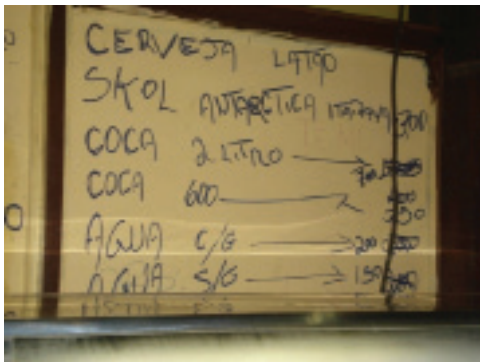 CERVEJA LATÃO
SKOL ANTARCTICA ITAIPAVA 300
COCA 2 LITRO
COCA 600 350
AGUA C/G 200
AGUA S/G 150